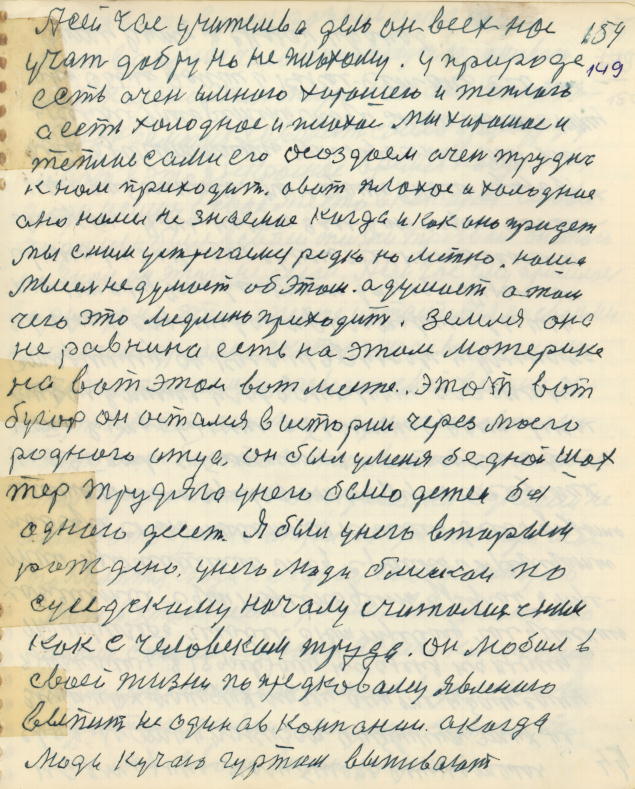 А сей час учителева дело он всех нас 154
учат добру но не плохому. у природе 149
есть очен много хорошего и теплого
а есть холодное и плохое мы хорошое и
теплые сами его осоздаем очен трудно
к нам приходит. овот плохое и холодное
оно нами не знаемое когда и как оно придет
мы с ним устречаемся редко но метко, наша
мысля не думает об этом. а думает о том
чего это медлино приходит. Земля она
не равнина есть на этом материке
на вот этом вот месте. этот вот
бугор он остался в истории через моего
родного отца. он был у меня бедной шах
тер трудяга у него было детей
одного десет. Я был у него вторым
рождено. у него люди близкаи по
суседскому началу считались с ним
как с человеком труда. он любил в
своей жизни по яредковому явлению
выпит не один а в компании. а когда
люди кучаю гуртом выпивают